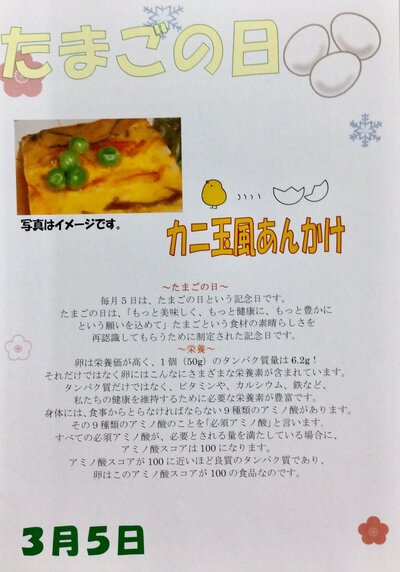 たまごの日
写真はイメージです。
カニ玉風あんかけ
～たまごの日～
毎月５日は、たまごの日という記念日です。
たまごの日は、「もっと美味しく、もっと健康に、もっと豊かに
という願いを込めて」たまごという食材の素晴らしさを
再認識してもらうために制定された記念日です。
～栄養～
卵は栄養価が高く、１個（50g）のタンパク質量は 6.2g！
それだけではなく卵にはこんなにさまざまな栄養素が含まれています。
タンパク質だけではなく、ビタミンや、カルシウム、鉄など、
私たちの健康を維持するために必要な栄養素が豊富です。
身体には、食事からとらなければならない９種類のアミノ酸があります。
その９種類のアミノ酸のことを「必須アミノ酸」と言います。
すべての必須アミノ酸が、必要とされる量を満たしている場合に、
アミノ酸スコアは 100 になります。
アミノ酸スコアが 100 に近いほど良質のタンパク質であり、
卵はこのアミノ酸スコアが 100 の食品なのです。
３月５日